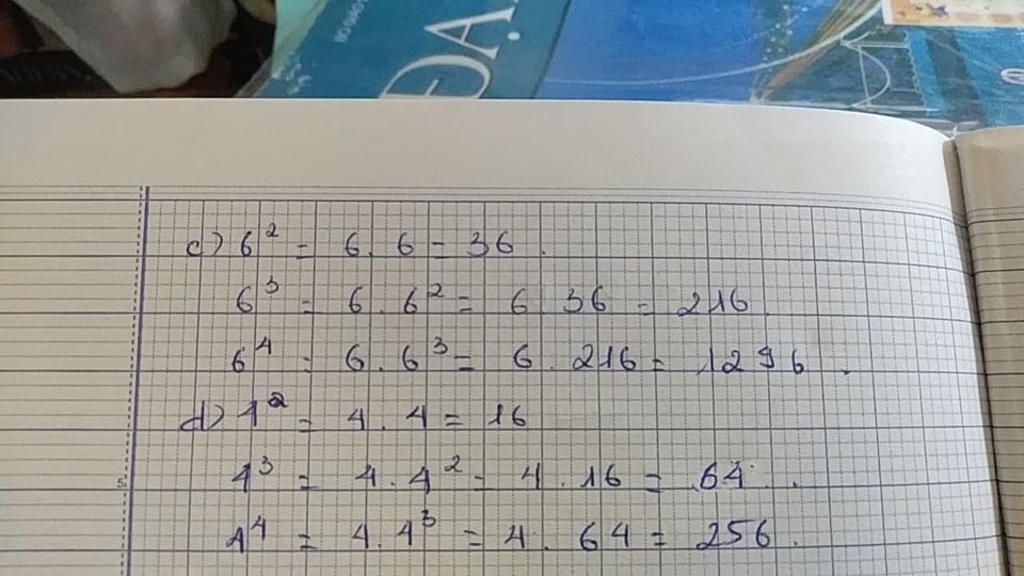 ĐẠ
c) 6² = 6 . 6 = 36 .
6³ = 6 . 6² = 6 . 36 = 216 .
6⁴ = 6 . 6³ = 6 . 216 = 1296 .
d) 4² = 4 . 4 = 16
4³ = 4 . 4² = 4 . 16 = 64 .
4⁴ = 4 . 4³ = 4 . 64 = 256 .